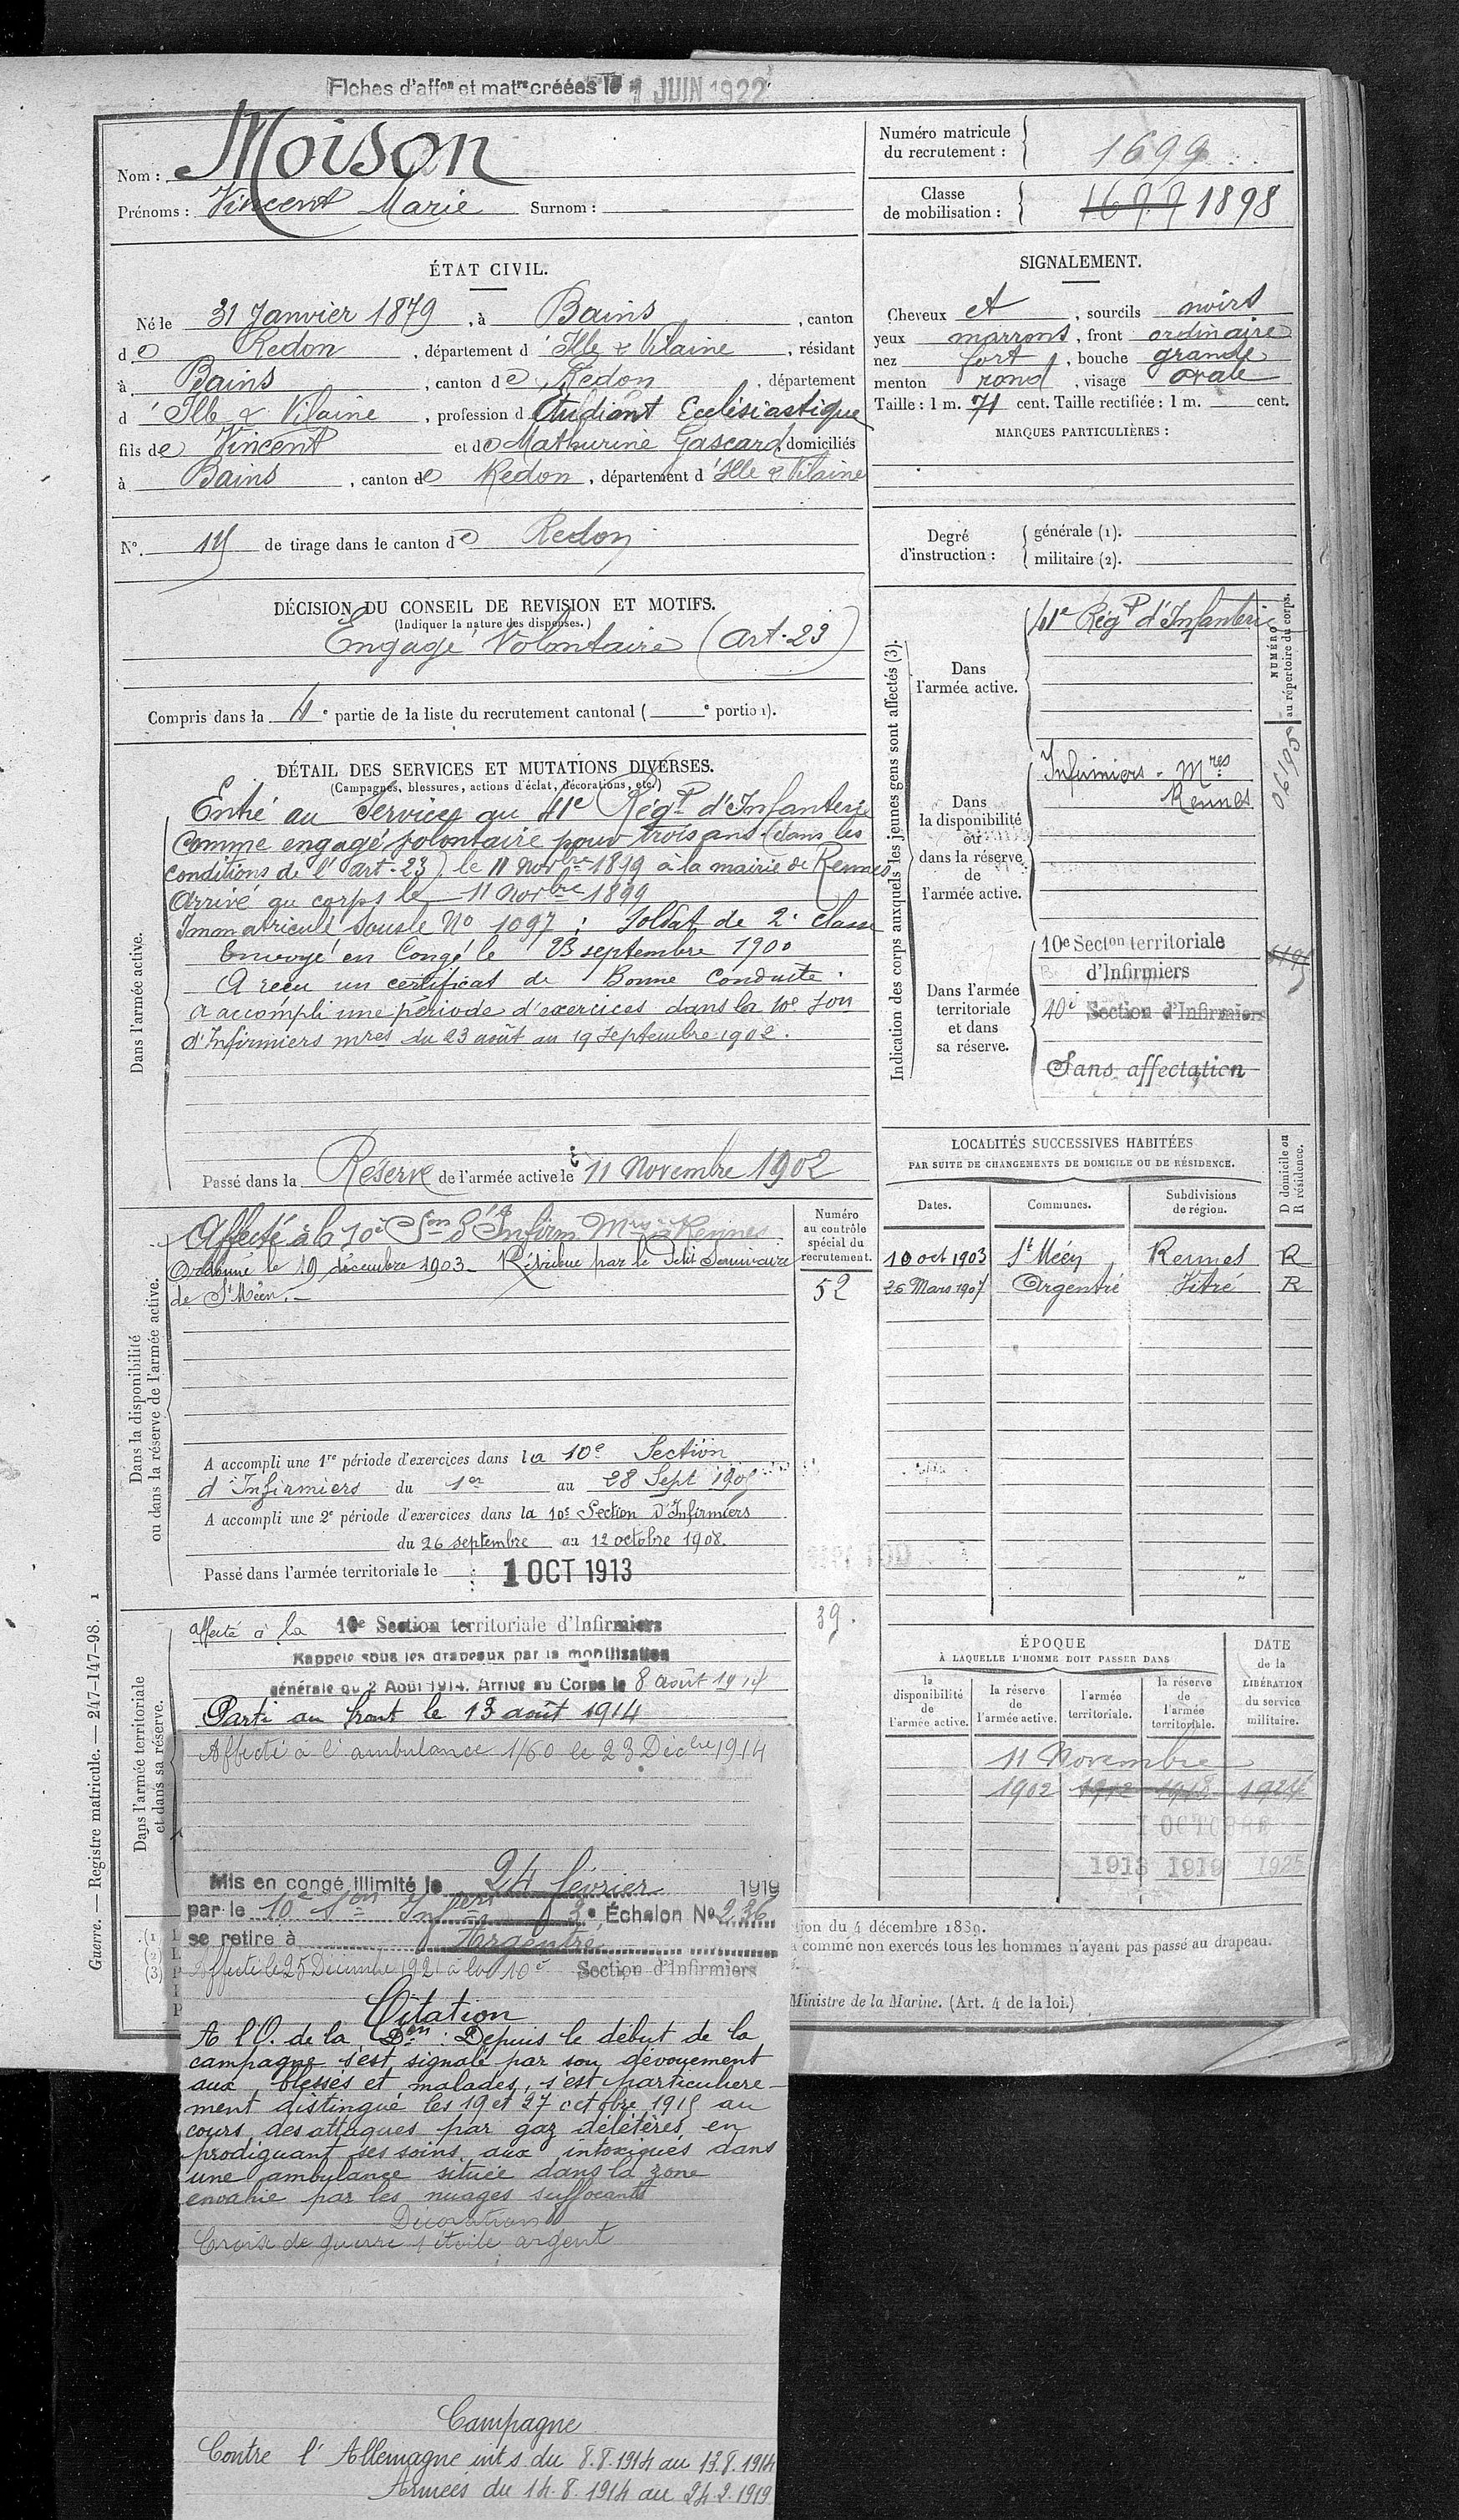 Fiches d'affon et matre créées le 1 JUIN 1922
Nom : Moison
Prénoms : Vincent Marie Surnom :
Numéro matricule du recrutement : 1699
Classe de mobilisation : 1898
ÉTAT CIVIL.
Né le 31 Janvier 1879, à Bains, canton
de Redon, département d'Ille & Vilaine, résidant
à Bains, canton de Redon, département
d'Ille & Vilaine, profession d Etudiant Ecclésiastique
fils de Vincent et de Mathurine Gascard domiciliés
à Bains, canton de Redon, département d'Ille & Vilaine
N°. de tirage dans le canton de Redon
SIGNALEMENT.
Cheveux et, sourcils noirs
yeux marrons, front ordinaire
nez fort, bouche grande
menton rond, visage ovale
Taille : 1 m. 71 cent. Taille rectifiée : 1 m. cent.
MARQUES PARTICULIÈRES :
Degré d'instruction : générale (1).
militaire (2).
DÉCISION DU CONSEIL DE REVISION ET MOTIFS.
(Indiquer la nature des dispenses.)
Engagé Volontaire (Art. 23)
Compris dans la 4e partie de la liste du recrutement cantonal ( e portion).
DÉTAIL DES SERVICES ET MUTATIONS DIVERSES.
(Campagnes, blessures, actions d'éclat, décorations, etc.)
Dans l'armée active.
Entré au Service au 41e Régt d'Infanterie
Comme engagé volontaire pour trois ans (dans les
conditions de l'art. 23) le 11 Novbre 1899 à la mairie de Rennes
Arrivé au corps le 11 Novbre 1899
Immatriculé sous le No 1097 ; Soldat de 2e classe
Envoyé en Congé le 23 septembre 1900
A reçu un certificat de Bonne Conduite.
A accompli une période d'exercices dans la 10e Son
d'Infirmiers mres du 23 août au 19 Septembre 1902.
Passé dans la Réserve de l'armée active le 11 Novembre 1902
Indication des corps auxquels les jeunes gens sont affectés (3).
NUMÉRO au répertoire du corps.
Dans l'armée active.
41e Régt d'Infanterie
Dans la disponibilité ou dans la réserve de l'armée active.
Infirmiers - Mres
Rennes
06195
Dans l'armée territoriale et dans sa réserve.
10e Secton territoriale
d'Infirmiers
10e Section d'Infirmiers
Sans affectation
Dans la disponibilité ou dans la réserve de l'armée active.
Affecté à la 10e Son d'Infirm. Mres à Rennes
Ordonné le 19 décembre 1903. Rétribué par le Petit Séminaire
de St Méen.
Numéro au contrôle spécial du recrutement.
52
A accompli une 1re période d'exercices dans la 10e Section
d'Infirmiers du 1er au 28 Sept
A accompli une 2e période d'exercices dans la 10e Section d'Infirmiers
du 26 septembre au 12 octobre 1908.
Passé dans l'armée territoriale le 1 OCT 1913
LOCALITÉS SUCCESSIVES HABITÉES
PAR SUITE DE CHANGEMENTS DE DOMICILE OU DE RÉSIDENCE.
Dates. Communes. Subdivisions de région. D domicile ou R résidence.
10 oct 1903 St Méen Rennes R
26 Mars 1907 Argentré Vitré R
Dans l'armée territoriale et dans sa réserve.
affecté à la 10e Section territoriale d'Infirmiers
39.
Rappelé sous les drapeaux par la mobilisation
générale du 2 Août 1914. Arrivé au Corps le 8 août 1914
Parti au front le 13 août 1914
Affecté à l'ambulance 1/60 le 23 Décbre 1914
Mis en congé illimité le 24 février 1919
par le 10e Son Infiers 3e Échelon No 236
se retire à Argentré
Affecté le 25 Décembre 1921 à la 10e Section d'Infirmiers
Citation
A l'O. de la Don : Depuis le début de la
campagne s'est signalé par son dévouement
aux blessés et malades, s'est particulière-
ment distingué les 19 et 27 octobre 1915 au
cours des attaques par gaz délétères en
prodiguant ses soins aux intoxiqués dans
une ambulance située dans la zone
envahie par les nuages suffocants
Décorations
Croix de guerre étoile argent
Campagne
Contre l'Allemagne int s du 8.8.1914 au 13.8.1914
Armées du 14.8.1914 au 24.2.1919
ÉPOQUE À LAQUELLE L'HOMME DOIT PASSER DANS
la disponibilité de l'armée active. la réserve de l'armée active. l'armée territoriale. la réserve de l'armée territoriale. DATE de la LIBÉRATION du service militaire.
11 Novembre
1902 1912 1918 1924
1 OCTOBRE
1913 1919 1925
tion du 4 décembre 1889.
comme non exercés tous les hommes n'ayant pas passé au drapeau.
Ministre de la Marine. (Art. 4 de la loi.)
Guerre. — Registre matricule. — 247-147-98. 1